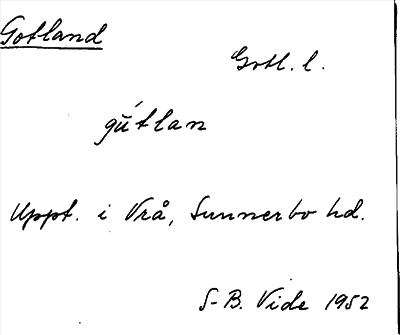 Gotland
Gotl. l.
gū́tlan
Uppt. i Vrå, Sunnerbo hd.
S-B. Vide 1952